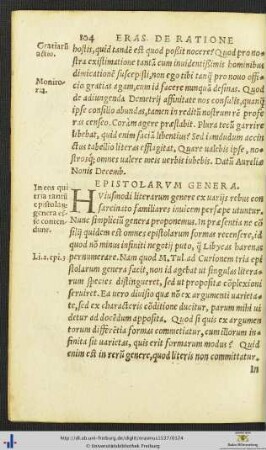 104 ERAS. DE RATIONE
Gratiarũ
actio.
hostis, quid tandē est quod possit nocere? Quod pro no-
stra existimatione tantã cum inuidentissimis hominibus
dimicationẽ suscepisti, non ego tibi tanq̃ pro nouo offi-
Monito-
ria.
cio gratias agam, cum id facere nunquã desinas. Quod
de adiungenda Demetrij affinitate nos consulis, quanq̃
ipse consilio abundas, tamen in reditũ nostrum rẽ profe-
ras censeo. Corã opere præstabit. Plura tecũ garrire
libebat, quid enim faciã libentius? Sed
ctus tabellio literas efflagitat. Quare ualebis ipse, no-
strosq; omnes ualere meis uerbis iubebis. Datũ Aureliæ
Nonis Decemb.
EPISTOLARVM GENERA.
In eos qui
tria tantũ
epistolarũ
genera es-
se conten-
dunt.
Huiusmodi literarum genere ex uarijs rebus con
farcinato familiares inuicem persæpe utuntur.
Nunc simpliciũ genera proponemus. In præsentia ne cõ
silij quidem est omnes epistolarum formas recensere, id
quod nõ minus infiniti negotij puto, q̃ Libycæ harenas
Li.2. epi.3
pernumerare. Nam quod M. Tul. ad Curionem tria epi
stolarum genera facit, non id agebat ut singulas litera-
rum species distingueret, sed ut propositæ cõplexioni
seruiret. Ea uero diuisio quæ nõ ex argumenti uarieta-
te, sed ex characteris cõditione ducitur, parum mihi ui
detur ad docẽdum apposita. Quod si quis ex argumen-
torum differẽtia formas commetiatur, cum illorum in-
finita sit uarietas, quis erit formarum modus? Quid
enim est in rerũ genere, quod literis non committatur.
In
http://dl.ub.uni-freiburg.de/diglit/erasmus1522110124
© Universitätsbibliothek Freiburg